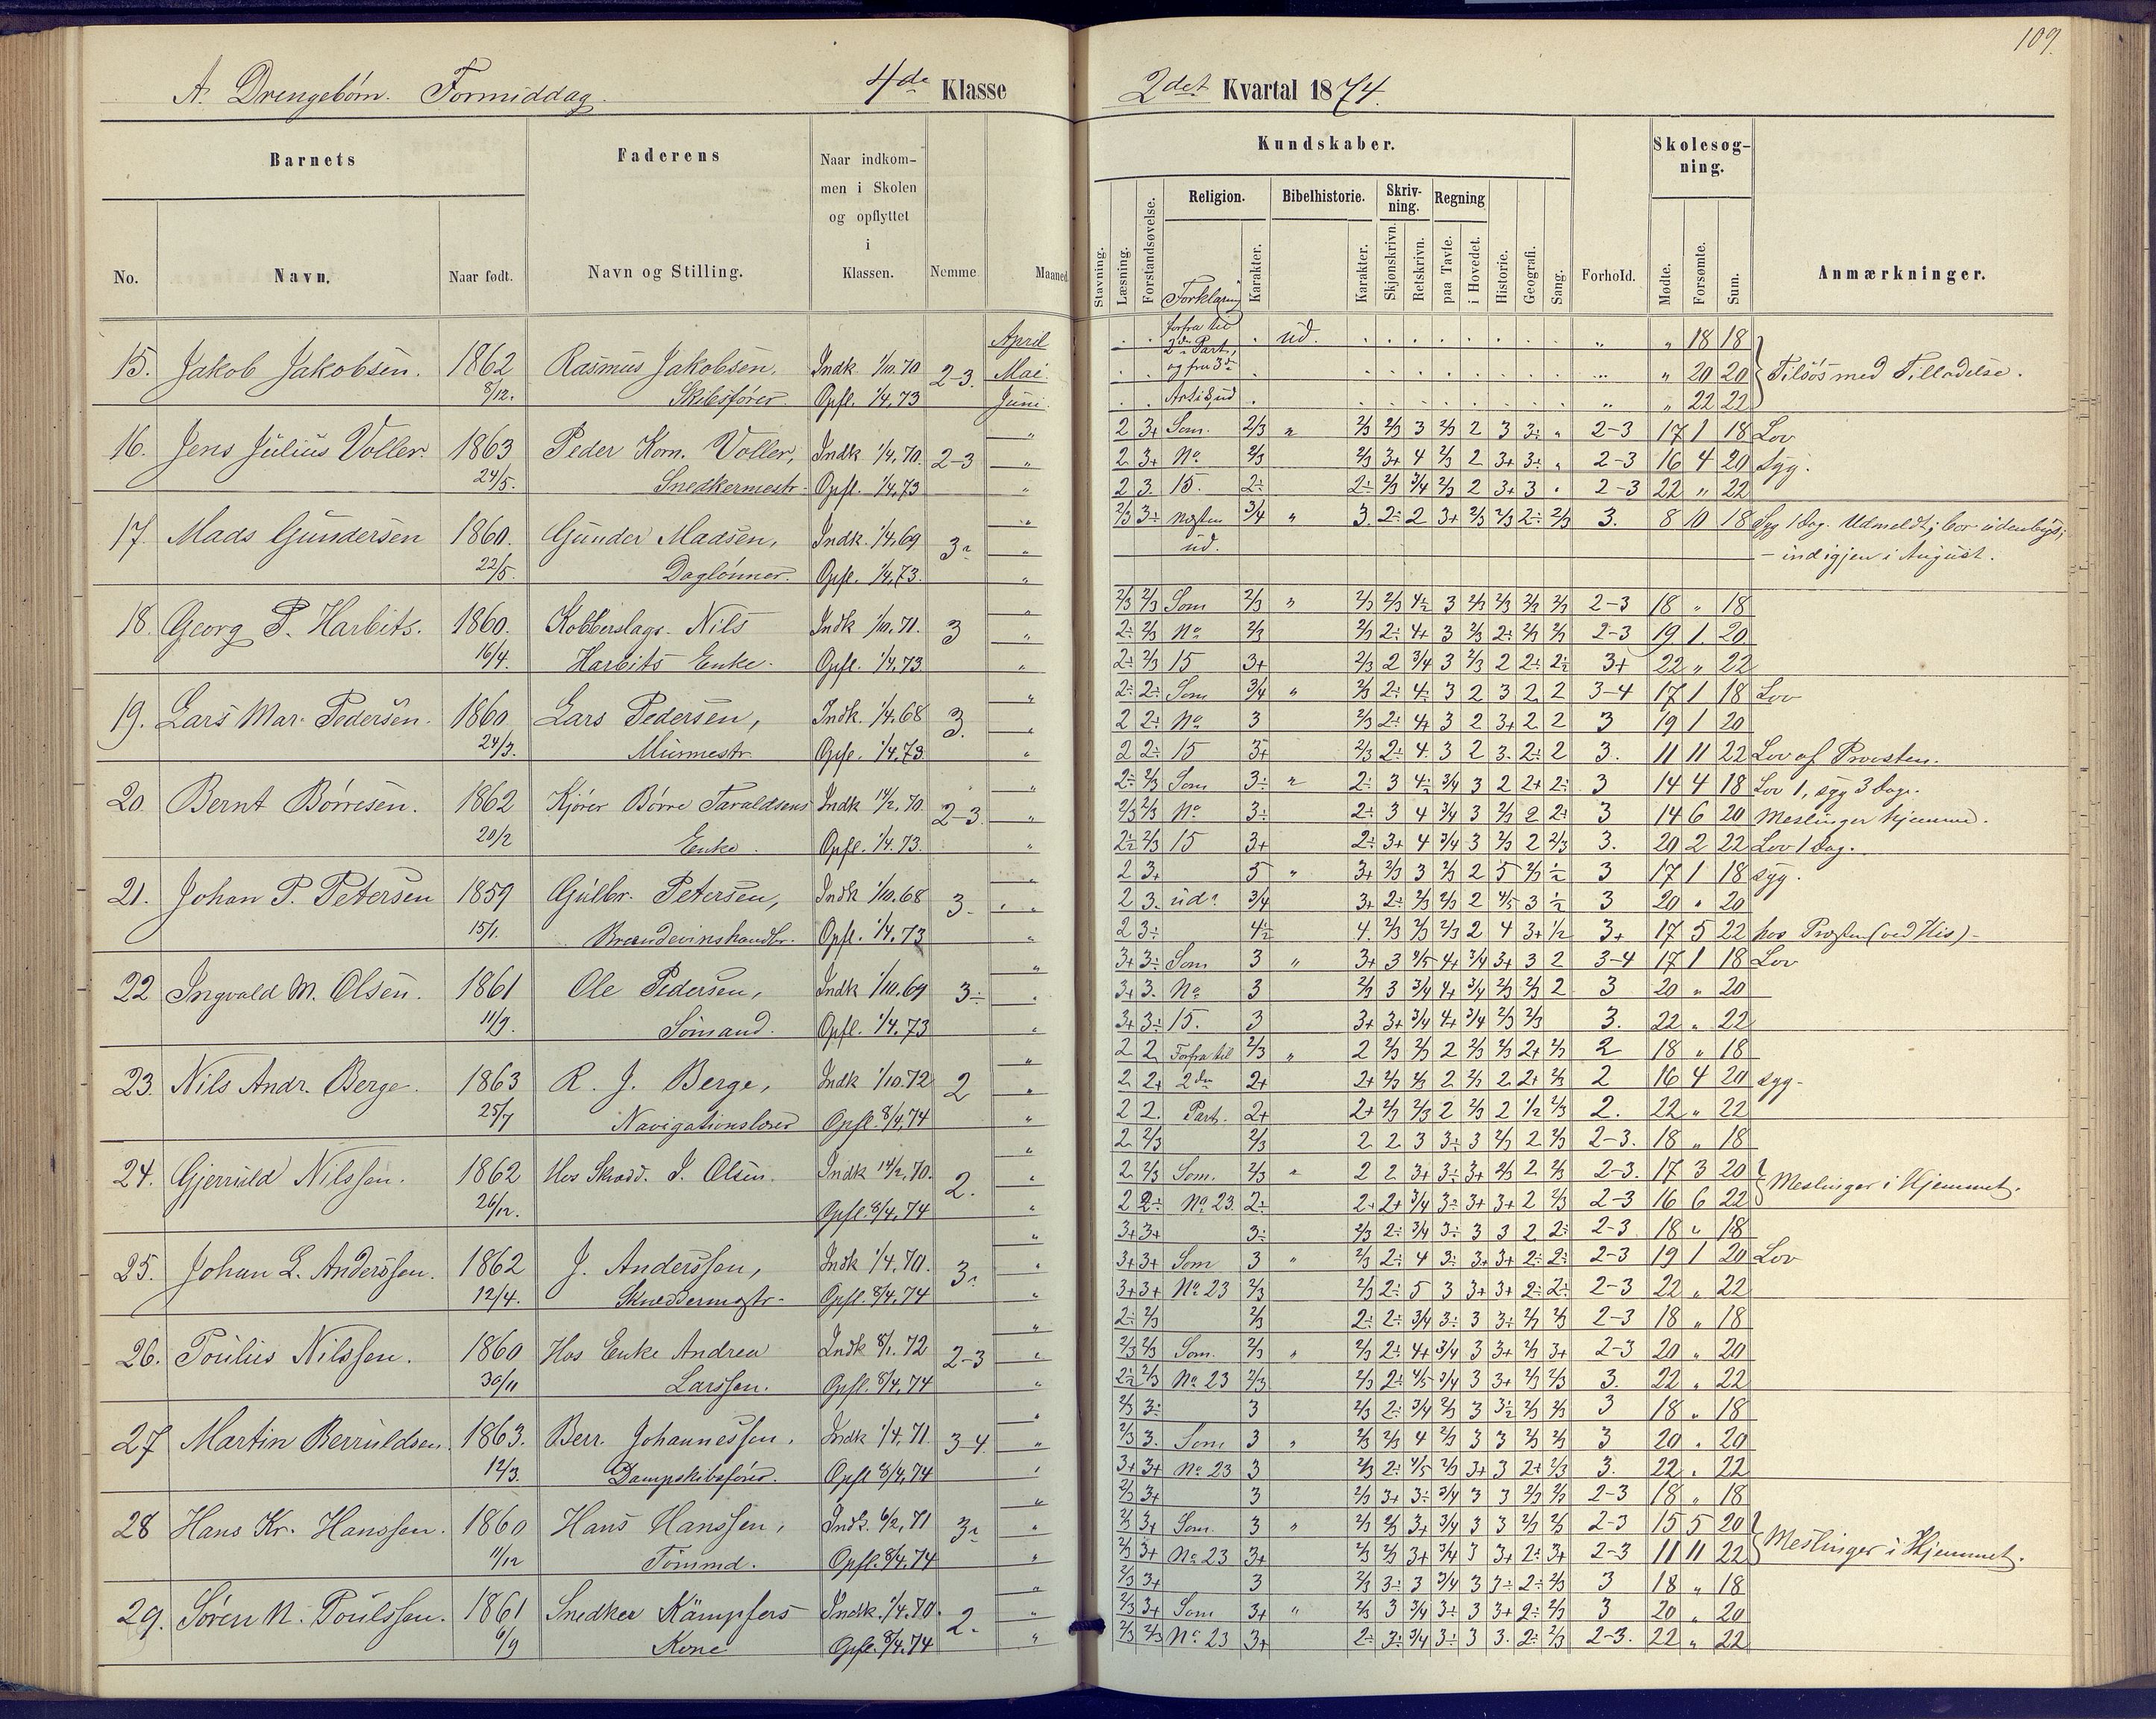 109.
A. Drengebørn. Formiddag. 4de Klasse
2det Kvartal 1874.
Barnets
Faderens
Naar indkom-
men i Skolen
og opflyttet
i
Klassen.
No.
Navn.
Naar født.
Navn og Stilling.
Nemme.
Maaned
Kundskaber.
Skolesøg-
ning.
Religion.
Bibelhistorie.
Skriv-
ning.
Regning
Stavning.
Læsning.
Forstandsøvelse.
Forklaring
Karakter.
Karakter.
Skjønskrivn.
Retskrivn.
paa Tavle.
i Hovedet.
Historie.
Geografi.
Sang.
Forhold.
Mødte.
Forsømte.
Sum.
Anmærkninger.
15. Jakob Jakobsen. 1862 Rasmus Jakobsen, Indk 1/10.70 2-3.
8/12. Skibsfører. Opfl. 1/4.73
April
Mai
Juni
forfra til
2den Part,
og fra 3die
Art. 3, ud
ud.
" 18 18
" 20 20
" 22 22
Tilsøs med Tilladelse.
16. Jens Julius Voller. 1863 Peder Korn. Voller, Indk 1/4.70. 2-3
24/5. Snedkermestr. Opfl. 1/4.73
2 3+ Som. 2/3 " 2/3 2/3 3 2/3 2 3 3÷ " 2-3 17 1 18 Lov
2 3+ No 2/3 2/3 3+ 4 2/3 2 3+ 3÷ " 2-3 16 4 20 syg.
2 3. 15. 2÷ 2÷ 2/3 3/4 2/3 2 3+ 3 . 2-3 22 " 22
17. Mads Gundersen 1860. Gunder Madsen, Indk. 1/4.69 3÷
22/5. Daglønner. Opfl. 1/4.73.
2/3 3÷ næsten 3/4 " 3. 2÷ 2 3+ 2/3 2/3 2÷ 2/3 3. 8 10 18 Syg 1 dag. Udmeldt; bor udenbyes;
ud. – ind igjen i August.
18. Georg P. Harbits. 1860. Kobberslags. Nils Indk. 1/10.71. 3
16/4. Harbits Enke. Opfl. 1/4.73.
2/3 2/3 Som 2/3 " 2/3 2/3 4÷ 3 2/3 2/3 2/3 2/3 2-3 18 " 18
2÷ 2/3 No 2/3 2/3 2÷ 4+ 3 2/3 2÷ 2/3 2/3 2-3 19 1. 20
2÷ 2/3 15 3+ 2/3 2 3/4 3 2/3 2 2÷ 2÷ 3+ 22 " 22
19. Lars Mar. Pedersen. 1860. Lars Pedersen, Indk. 1/4.68 3.
24/3. Murmestr. Opfl. 1/4.73.
2÷ 2÷ Som 3/4 " 2/3 2÷ 4÷ 3 2 3 2 2 3-4 17 1 18 Lov
2 2÷ No 3 2/3 2÷ 4+ 3 2 3+ 2 2 3 19 1 20
2 2÷ 15 3+ 2/3 2÷ 4. 3 2 3. 2÷ 2 3. 11 11 22 Lov af Provsten.
20. Bernt Børresen. 1862 Kjører Børre Taraldsens Indk 14/2.70. 2-3.
20/2 Enke. Opfl. 1/4.73.
2÷ 2/3 Som 3÷ " 2÷ 3 4÷ 3/4 3 2 2+ 2÷ 3 14 4 18 Lov 1, syg 3 dage.
2/3 2/3 No 3÷ 2÷ 3 4 3/4 3 2/3 2 2÷ 3 14 6 20 Meslinger hjemme.
2÷ 2/3 15 3+ 2÷ 3+ 4 3/4 3 2/3 2 2/3 3. 20 2 22 Lov 1 dag.
21. Johan P. Petersen 1859 Gulbr. Petersen, Indk 1/10.68 3.
15/1. Brændevinshandlr. Opfl. 1/4.73
2 3+ 5 " 3+ 2/3 3 2/3 2 5 2/3 1/2 3 17 1 18 syg.
2 3. ud. 3/4 3+ 2÷ 2/3 2/3 2 4/5 3 1/2 3 20 . 20
2 3÷ 4÷ 4. 2/3 2/3 2/3 2 4 3+ 1/2 3+ 17 5 22 hos Præsten (ved His)–
22 Ingvald M. Olsen. 1861 Ole Pedersen, Indk 1/10.69 3÷
11/9. Sømand. Opfl. 1/4.73
3+ 3÷ Som 3 " 3+ 3 3/5 4+ 3/4 3+ 3 2 3-4 17 1 18 Lov
3+ 3. No 3 2/3 3 3/4 4+ 3/4 2/3 2/3 2 3 20 " 20
3+ 3÷ 15. 3 3+ 3+ 3/4 4+ 3/4 2/3 2/3 3. 22 . 22
23. Nils Andr. Berge. 1863 R. J. Berge, Indk 1/10.72 2
25/7 Navigationslærer Opfl. 8/4.74
2 2 Forfra til 2/3 " 2 2/3 2/3 2 2/3 2/3 2+ 2/3 2 18 " 18
2 2+ 2den 2+ 2+ 2/3 2/3 2 2/3 2 2+ 2/3 2 16 4 20 syg.
2 2. Part. 2+ 2+ 2/3 2/3 2 2/3 2 1/2 2/3 2. 22 " 22
24. Gjeruld Nilssen. 1862 Hos Skrædd. J. Olsen. Indk 14/2.70. 2.
26/12. Opfl. 8/4.74
2 2/3 2/3 2 2 3 3÷ 3 2/3 2 2/3 2-3. 18 " 18
2 2/3 Som. 2/3 " 2 2 3+ 3÷ 3+ 2/3 2 2/3 2-3. 17 3 20
2 2÷ No 23. 2÷ 2+ 2+ 3/4 3÷ 3+ 3+ 2 2/3 2-3 16 6 22
Meslinger i Hjemmet.
25. Johan L. Anderssen. 1862 J. Anderssen, Indk 1/4.70. 3÷
12/4. Skræddermestr. Opfl. 8/4.74
3+ 3+ 3÷ 2/3 2÷ 3/4 3÷ 3 3 2 2÷ 2-3 18 " 18
3+ 3+ Som 3 " 2/3 2÷ 4 3÷ 3+ 3+ 2÷ 2÷ 2-3 19 1 20 Lov
3+ 3+ No 23 2/3 2/3 2÷ 5 3 3+ 3+ 2÷ 2÷ 2-3 22 " 22
26. Poulius Nilssen. 1860 Hos Enke Andrea Indk 8/1.72 2-3
30/11 Larssen. Opfl. 8/4.74
2÷ 2/3 2/3 2÷ 2÷ 3/4 3÷ 3 3÷ 2/3 2/3 2-3 18 " 18
2/3 2/3 Som. 2/3 " 2/3 2÷ 4+ 3/4 3 3+ 2/3 3+ 2-3 20 " 20
2÷ 2/3 No 23 2/3 2/3 2÷ 4/5 3/4 3 3+ 2/3 2/3 3. 22 . 22
27 Martin Berruldsen. 1863. Berr. Johannessen. Indk 1/4.71. 3-4.
12/3. Dampskibsfører. Opfl 8/4.74
2/3 3÷ 3 2/3 2÷ 3/4 2/3 3 3÷ 2/3 2/3 3 18 " 18
2/3 3. Som 3 " 2/3 2/3 4 2/3 3 3 2/3 2/3 3 20 . 20
3+ 3+ No 23 3 2/3 2÷ 4/5 2/3 3+ 3 2+ 2/3 3. 22 . 22
28 Hans Kr. Hanssen. 1860 Hans Hanssen, Indk. 6/2.71 3÷
11/12 Tømmd. Opfl. 8/4.74
2/3 3+ 3 2/3 3+ 3÷ 3/4 3 3 2/3 2/3 2-3 18 " 18
2/3 3+ Som. 3 " 2/3 2/3 3+ 3/4 3 3 2/3 2/3 2-3 15 5 20
2/3 3+ No 23 3+ 2/3 2/3 3+ 3/4 3 3+ 2÷ 3+ 2-3 11 11 22
Meslinger i Hjemmet.
29. Søren N. Poulssen. 1861 Snedker Kämpfers Indk. 1/4.70. 2.
6/9 Kone Opfl. 8/4.74
2/3 3+ 3 2/3 3÷ 3 3/4 3 3÷ 2÷ 2/3 3 18 " 18
2/3 3+ Som 3+ " 2/3 3 3/4 3÷ 3 3+ 2÷ 2/3 3 20 " 20
2/3 2/3 No 23 3+ 2÷ 3÷ 3/4 3÷ 3 3. 2÷ 2/3 2-3. 22 " 22